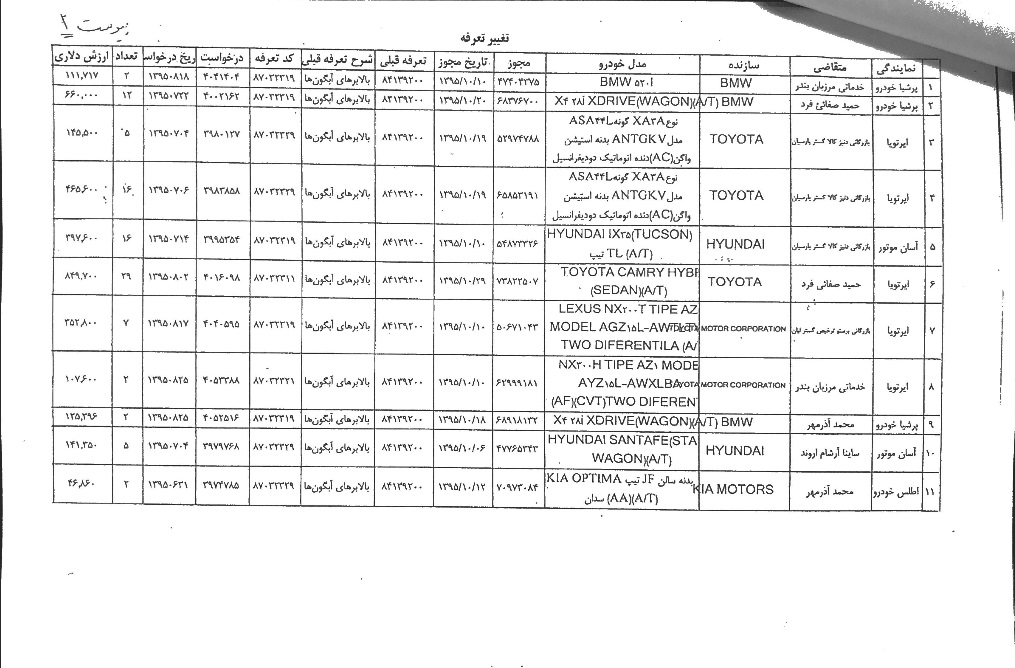 پیوست ۲
تغییر تعرفه
نمایندگی متقاضی سازنده مدل خودرو مجوز تاریخ مجوز تعرفه قبلی شرح تعرفه قبلی کد تعرفه درخواست ریخ درخواس تعداد ارزش دلاری
۱ پرشیا خودرو خدماتی مرزبان بندر BMW BMW ۵۲۰I ۴۷۴۰۴۲۷۵ ۱۳۹۵/۱۰/۱۰ ۸۴۱۳۹۲۰۰ بالابرهای آبگون‌ها ۸۷۰۳۲۳۱۹ ۴۰۴۱۴۰۴ ۱۳۹۵۰۸۱۸ ۲ ۱۱۱,۷۱۷
۲ پرشیا خودرو حمید صفائی فرد X۴ ۲۸i XDRIVE(WAGON)(A/T) BMW ۶۸۳۷۶۷۰۰ ۱۳۹۵/۱۰/۲۰ ۸۴۱۳۹۲۰۰ بالابرهای آبگون‌ها ۸۷۰۳۲۳۱۹ ۴۰۰۲۱۶۲ ۱۳۹۵۰۷۲۲ ۱۲ ۶۶۰,۰۰۰
نوع XA۳A گونه ASA۴۴L
۳ ایرتویا بازرگانی دنیز کالا گستر پارسیان TOYOTA مدل ANTGKV بدنه استیشن ۵۲۹۷۴۷۸۸ ۱۳۹۵/۱۰/۱۹ ۸۴۱۳۹۲۰۰ بالابرهای آبگون‌ها ۸۷۰۳۲۳۲۹ ۳۹۸۰۱۲۷ ۱۳۹۵۰۷۰۴ ۵ ۱۴۵,۵۰۰
واگن(AC)دنده اتوماتیک دودیفرانسیل
نوع XA۳A گونه ASA۴۴L
۴ ایرتویا بازرگانی دنیز کالا گستر پارسیان TOYOTA مدل ANTGKV بدنه استیشن ۶۵۸۵۳۱۹۱ ۱۳۹۵/۱۰/۱۹ ۸۴۱۳۹۲۰۰ بالابرهای آبگون‌ها ۸۷۰۳۲۳۲۹ ۳۹۸۳۸۵۸ ۱۳۹۵۰۷۰۶ ۱۶ ۴۶۵,۶۰۰
واگن(AC)دنده اتوماتیک دودیفرانسیل
HYUNDAI IX۳۵(TUCSON)
۵ آسان موتور بازرگانی دنیز کالا گستر پارسیان HYUNDAI تیپ TL (A/T) ۵۴۸۷۳۳۲۶ ۱۳۹۵/۱۰/۱۰ ۸۴۱۳۹۲۰۰ بالابرهای آبگون‌ها ۸۷۰۳۲۳۱۹ ۳۹۹۵۳۵۴ ۱۳۹۵۰۷۱۴ ۱۶ ۳۹۷,۶۰۰
TOYOTA CAMRY HYBF
۶ ایرتویا حمید صفائی فرد TOYOTA (SEDAN)(A/T) ۷۳۸۲۲۵۰۷ ۱۳۹۵/۱۰/۲۹ ۸۴۱۳۹۲۰۰ بالابرهای آبگون‌ها ۸۷۰۳۲۳۱۱ ۴۰۱۶۰۹۸ ۱۳۹۵۰۸۰۲ ۲۹ ۸۴۹,۷۰۰
LEXUS NX۲۰۰T TIPE AZ
۷ ایرتویا MOTOR CORPORATION MODEL AGZ۱۵L-AW ۵۰۶۷۱۰۴۳ ۱۳۹۵/۱۰/۱۰ ۸۴۱۳۹۲۰۰ بالابرهای آبگون‌ها ۸۷۰۳۲۳۱۹ ۴۰۴۰۵۹۵ ۱۳۹۵۰۸۱۷ ۷ ۳۵۲,۸۰۰
TWO DIFERENTILA (A/
NX۳۰۰H TIPE AZ۱ MODE
۸ ایرتویا خدماتی مرزبان بندر MOTOR CORPORATION AYZ۱۵L-AWXLB ۶۲۹۹۹۱۸۱ ۱۳۹۵/۱۰/۱۰ ۸۴۱۳۹۲۰۰ بالابرهای آبگون‌ها ۸۷۰۳۲۳۲۱ ۴۰۵۳۳۸۸ ۱۳۹۵۰۸۲۵ ۲ ۱۰۷,۶۰۰
(AF)(CVT)TWO DIFEREN
۹ پرشیا خودرو محمد آذرمهر X۴ ۲۸i XDRIVE(WAGON)(A/T) BMW ۶۸۹۱۸۱۳۲ ۱۳۹۵/۱۰/۱۸ ۸۴۱۳۹۲۰۰ بالابرهای آبگون‌ها ۸۷۰۳۲۳۱۹ ۴۰۵۲۵۱۶ ۱۳۹۵۰۸۲۵ ۲ ۱۲۵,۳۹۶
HYUNDAI SANTAFE(STA
۱۰ آسان موتور ساینا آرشام اروند HYUNDAI WAGON)(A/T) ۴۷۷۶۵۳۴۳ ۱۳۹۵/۱۰/۰۶ ۸۴۱۳۹۲۰۰ بالابرهای آبگون‌ها ۸۷۰۳۲۳۲۹ ۳۹۷۹۷۶۸ ۱۳۹۵۰۷۰۴ ۵ ۱۴۱,۳۵۰
KIA OPTIMA تیپ JF بدنه سالن
۱۱ اطلس خودرو محمد آذرمهر KIA MOTORS سدان (AA)(A/T) ۷۰۹۷۳۰۸۴ ۱۳۹۵/۱۰/۱۲ ۸۴۱۳۹۲۰۰ بالابرهای آبگون‌ها ۸۷۰۳۲۳۲۹ ۳۹۷۴۷۸۵ ۱۳۹۵۰۶۳۱ ۲ ۴۶,۸۶۰